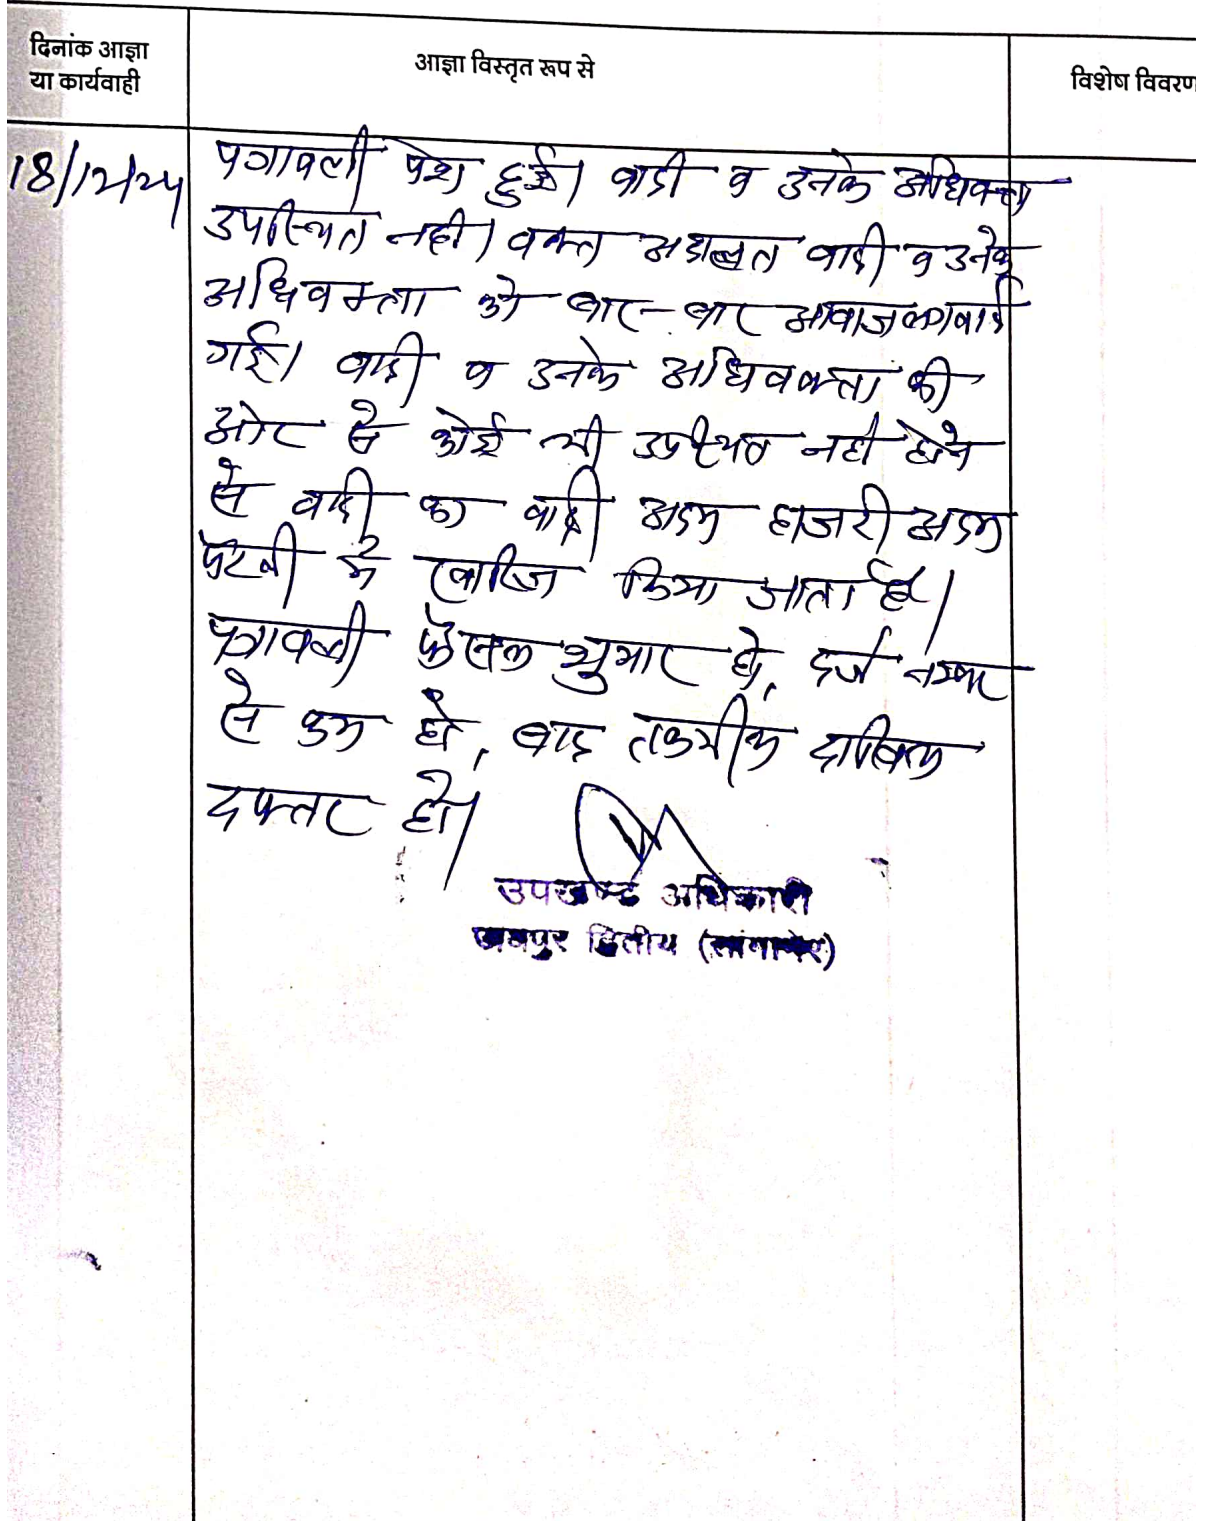 दिनांक आज्ञा
या कार्यवाही
आज्ञा विस्तृत रूप से
विशेष विवरण
18/12/24
पत्रावली पेश हुई। वादी व उनके अधिवक्ता
उपस्थित नहीं। वक्त अदालत वादी व उनके
अधिवक्ता को बार-बार आवाज लगवाई
गई। वादी व उनके अधिवक्ता की
ओर से कोई भी उपस्थित नहीं होने
से वादी का वाद अदम हाजरी अदम
पैरवी में खारिज किया जाता है।
पत्रावली फैसल शुमार हो, दर्ज नम्बर
से कम हो, बाद तकमील दाखिल
दफ्तर हो।
उपखण्ड अधिकारी
जयपुर द्वितीय (सांगानेर)